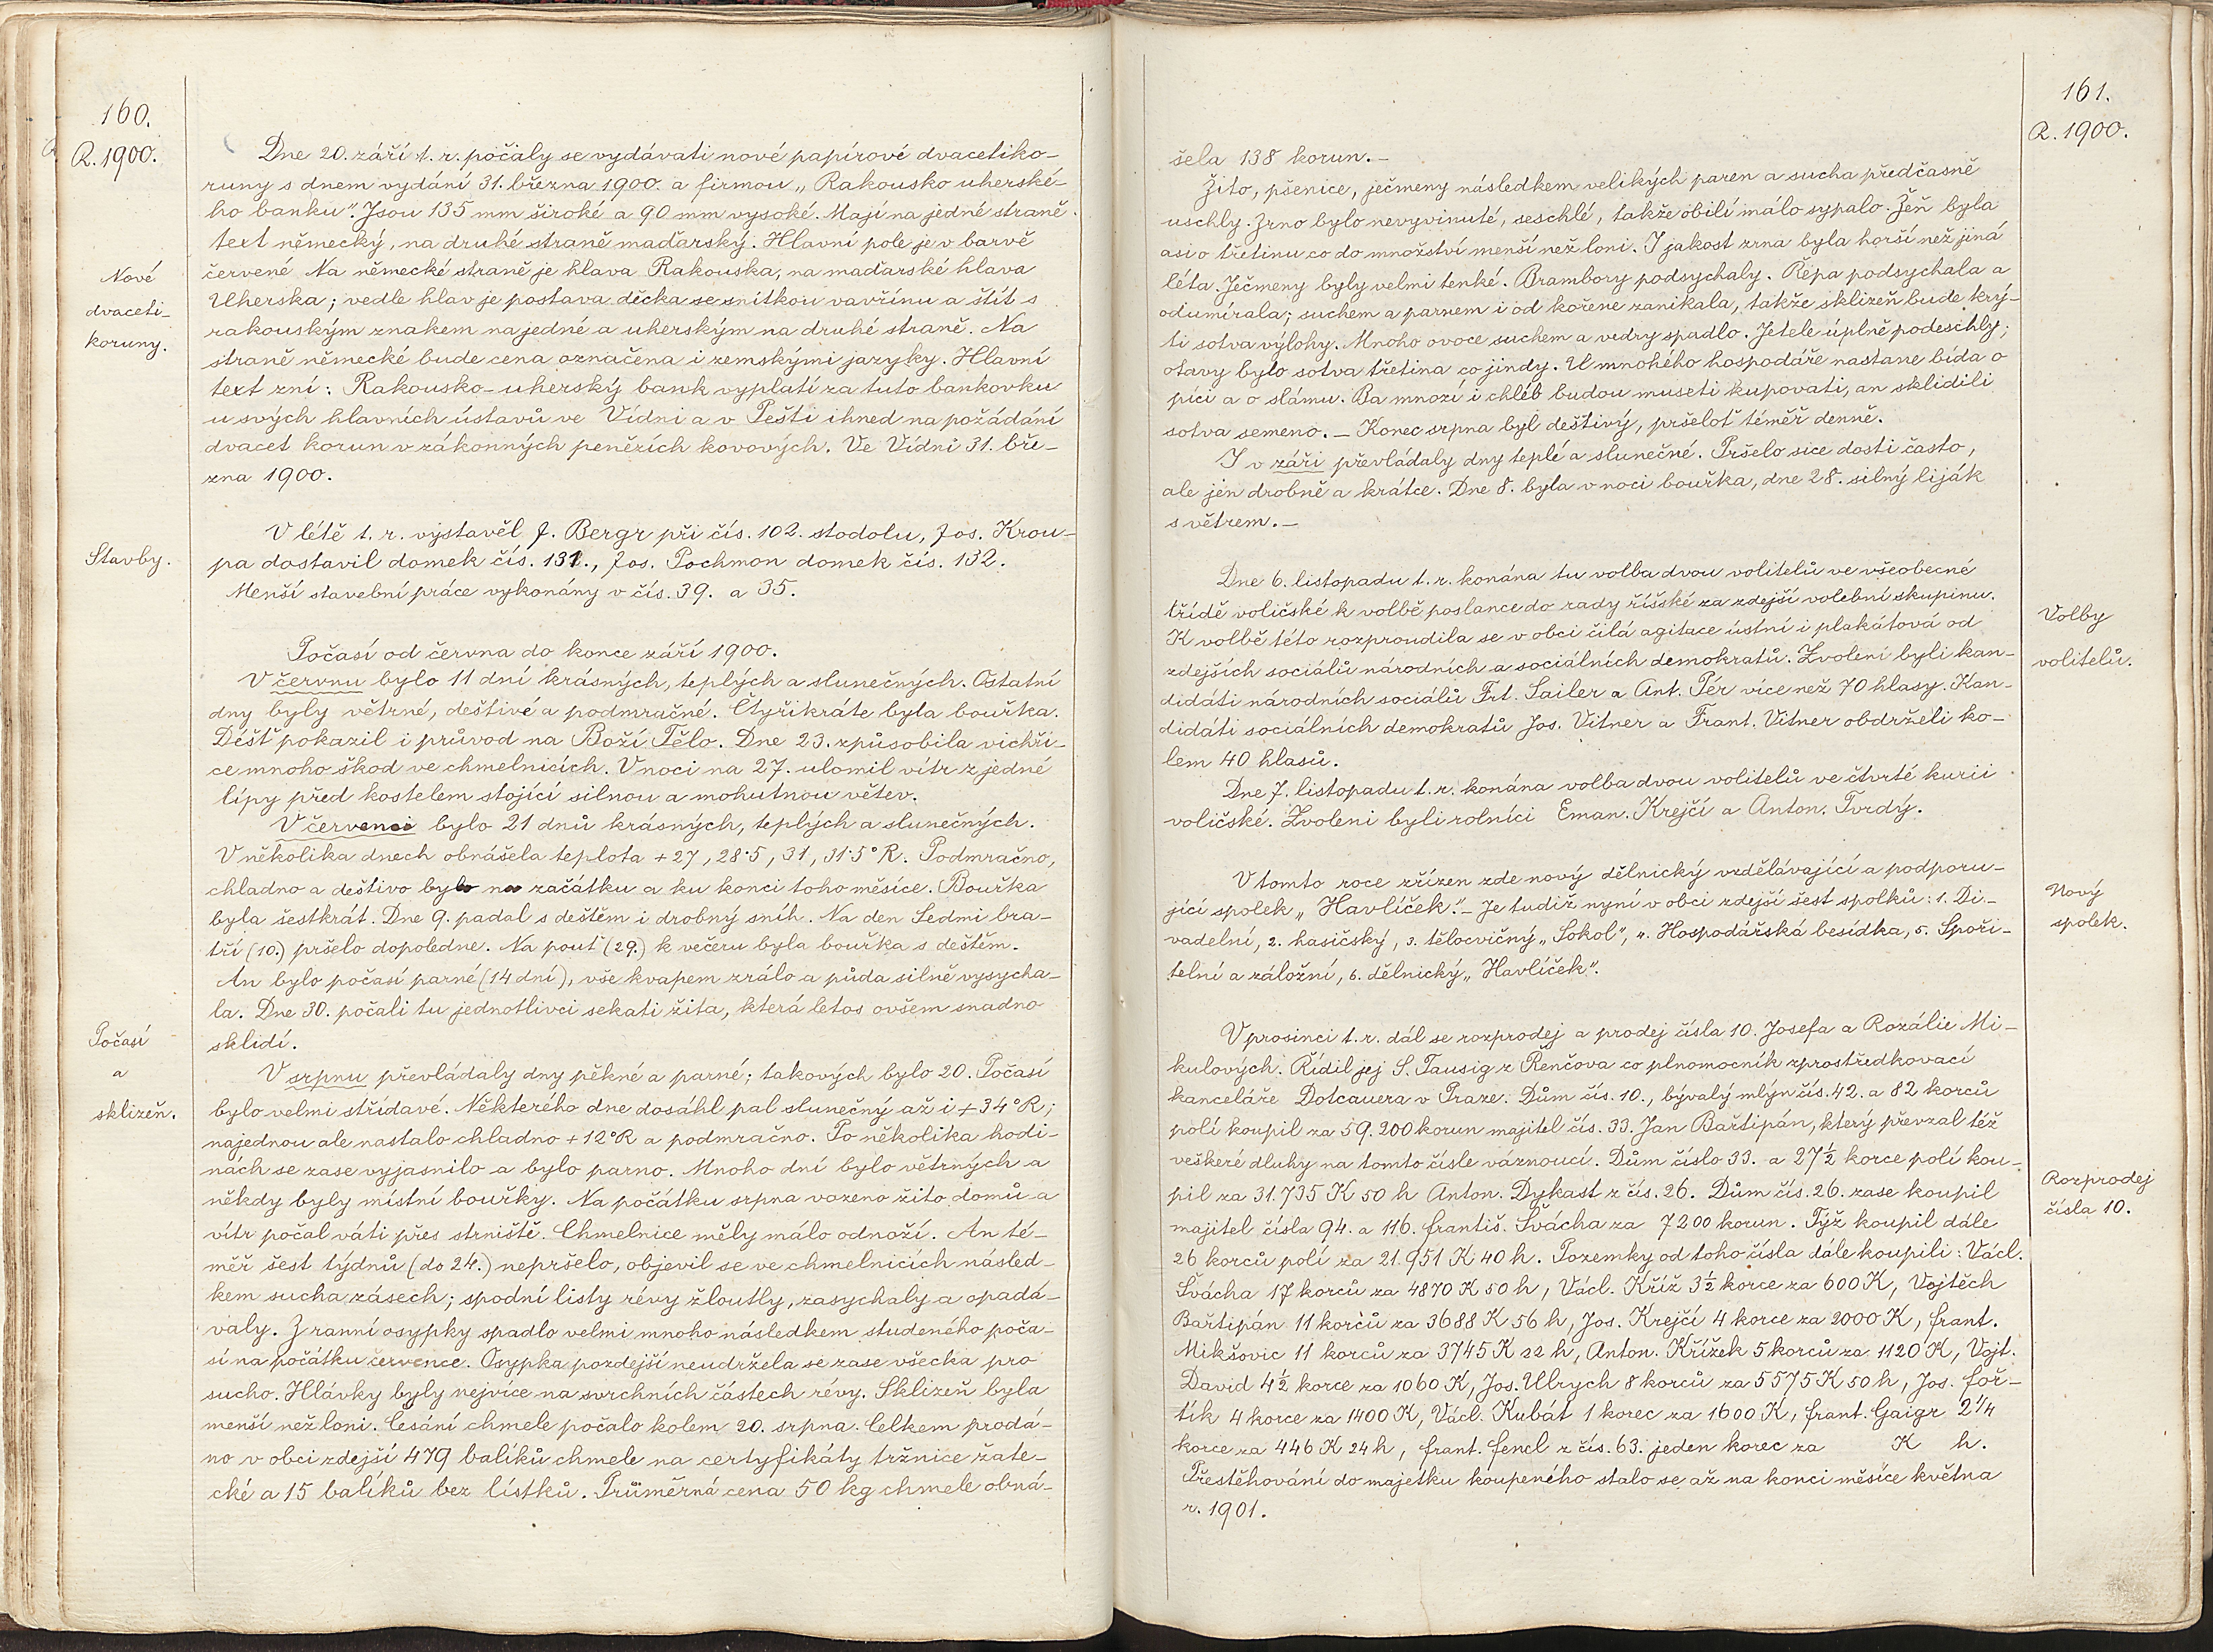 160.
R. 1900.
Dne 20. září t. r. počaly se vydávati nové papírové dvacetiko-
runy s dnem vydání 31. března 1900. a firmou „Rakousko uherské-
ho banku". Jsou 135 mm široké a 90 mm vysoké. Mají na jedné straně
text německý, na druhé straně maďarský. Hlavní pole je v barvě
Nové
dvaceti-
koruny.
červené Na německé straně je hlava Rakouska, na maďarské hlava
Uherska; vedle hlav je postava děcka se snítkou vavřínu a štít s
rakouským znakem na jedné a uherským na druhé straně. Na
straně německé bude cena označena i zemskými jazyky. Hlavní
text zní: Rakousko-uherský bank vyplatí za tuto bankovku
u svých hlavních ústavů ve Vídni a v Pešti ihned na požádání
dvacet korun v zákonných penězích kovových. Ve Vídni 31. bře-
zna 1900.
Stavby.
V létě t. r. vystavěl J. Bergr při čís. 102. stodolu, Jos. Krou-
pa dostavil domek čís. 131., Jos. Pochmon domek čís. 132.
Menší stavební práce vykonány v čís. 39. a 35.
Počasí od června do konce září 1900.
V červnu bylo 11 dní krásných, teplých a slunečných. Ostatní
dny byly větrné, deštivé a podmračné. Čtyřikráte byla bouřka.
Déšť pokazil i průvod na Boží Tělo. Dne 23. způsobila vichři-
ce mnoho škod ve chmelnicích. V noci na 27. ulomil vítr z jedné
lípy před kostelem stojící silnou a mohutnou větev.
V červenci bylo 21 dnů krásných, teplých a slunečných.
V několika dnech obnášela teplota + 27, 28·5, 31, 31·5° R. Podmračno,
chladno a deštivo bylo na začátku a ku konci toho měsíce. Bouřka
byla šestkrát. Dne 9. padal s deštěm i drobný sníh. Na den Sedmi bra-
tří (10.) pršelo dopoledne. Na pouť (29.) k večeru byla bouřka s deštěm.
An bylo počasí parné (14 dní), vše kvapem zrálo a půda silně vysycha-
la. Dne 30. počali tu jednotlivci sekati žita, která letos ovšem snadno
sklidí.
Počasí
a
sklizeň.
V srpnu převládaly dny pěkné a parné; takových bylo 20. Počasí
bylo velmi střídavé. Některého dne dosáhl pal slunečný až i + 34° R;
najednou ale nastalo chladno + 12° R a podmračno. Po několika hodi-
nách se zase vyjasnilo a bylo parno. Mnoho dní bylo větrných a
někdy byly místní bouřky. Na počátku srpna vozeno žito domů a
vítr počal váti přes strniště. Chmelnice měly málo odnoží. An té-
měř šest týdnů (do 24.) nepršelo, objevil se ve chmelnicích násled-
kem sucha zásech; spodní listy révy žloutly, zasychaly a opadá-
valy. Z ranní osypky spadlo velmi mnoho následkem studeného poča-
sí na počátku července. Osypka pozdejší neudržela se zase všecka pro
sucho. Hlávky byly nejvíce na svrchních částech révy. Sklizeň byla
menší než loni. Česání chmele počalo kolem 20. srpna. Celkem prodá-
no v obci zdejší 479 balíků chmele na certyfikáty tržnice žate-
cké a 15 balíků bez lístků. Průměrná cena 50 kg chmele obná-
161.
R. 1900.
šela 138 korun. -
Žito, pšenice, ječmeny následkem velikých paren a sucha předčasně
uschly. Zrno bylo nevyvinuté, seschlé, takže obilí málo sypalo. Žeň byla
asi o třetinu co do množství menší než loni. I jakost zrna byla horší než jiná
léta. Ječmeny byly velmi tenké. Brambory podsychaly. Řepa podsychala a
odumírala; suchem a parnem i od kořene zanikala, takže sklizeň bude krý-
ti sotva výlohy. Mnoho ovoce suchem a vedry spadlo. Jetele úplně podeschly;
otavy bylo sotva třetina co jindy. U mnohého hospodáře nastane bída o
píci a o slámu. Ba mnozí i chléb budou museti kupovati, an sklidili
sotva semeno. - Konec srpna byl deštivý, pršeloť téměř denně.
I v září převládaly dny teplé a slunečné. Pršelo sice dosti často,
ale jen drobně a krátce. Dne 8. byla v noci bouřka, dne 28. silný liják
s větrem. -
Volby
volitelů.
Dne 6. listopadu t. r. konána tu volba dvou volitelů ve všeobecné
třídě voličské k volbě poslance do rady říšské za zdejší volební skupinu.
K volbě této rozproudila se v obci čilá agitace ústní i plakátová od
zdejších sociálů národních a sociálních demokratů. Zvoleni byli kan-
didáti národních sociálů Frt. Sailer a Ant. Pér více než 70 hlasy. Kan-
didáti sociálních demokratů Jos. Vitner a Frant. Vitner obdrželi ko-
lem 40 hlasů.
Dne 7. listopadu t. r. konána volba dvou volitelů ve čtvrté kurii
voličské. Zvoleni byli rolníci Eman. Krejčí a Anton. Tvrdý.
Nový
spolek.
V tomto roce zřízen zde nový dělnický vzdělávající a podporu-
jící spolek „Havlíček". - Je tudiž nyní v obci zdejší šest spolků: 1. Di-
vadelní, 2. hasičský, 3. tělocvičný „Sokol", 4. Hospodářská besídka, 5. Spoři-
telní a záložní, 6. dělnický „Havlíček".
Rozprodej
čísla 10.
V prosinci t. r. dál se rozprodej a prodej čísla 10. Josefa a Rozálie Mi-
kulových. Řídil jej S. Tausig z Řenčova co plnomocník zprostředkovací
kanceláře Dotcauera v Praze. Dům čís. 10., bývalý mlýn čís. 42. a 82 korců
polí koupil za 59.200 korun majitel čís. 33. Jan Bařtipán, který převzal též
veškeré dluhy na tomto čísle váznoucí. Dům číslo 33. a 27½ korce polí kou-
pil za 31.735 K 50 h Anton. Dykast z čís. 26. Dům čís. 26. zase koupil
majitel čísla 94. a 116. Františ. Švácha za 7200 korun. Týž koupil dále
26 korců polí za 21.951 K 40 h. Pozemky od toho čísla dále koupili: Václ.
Švácha 17 korců za 4870 K 50 h, Václ. Kříž 3½ korce za 600 K, Vojtěch
Bařtipán 11 korců za 3688 K 56 h, Jos. Krejčí 4 korce za 2000 K, Frant.
Mikšovic 11 korců za 3745 K 22 h, Anton. Křížek 5 korců za 1120 K, Vojt.
David 4½ korce za 1060 K, Jos. Ulrych 8 korců za 5575 K 50 h, Jos. Foř-
tík 4 korce za 1400 K, Václ. Kubát 1 korec za 1600 K, Frant. Gaigr 2¼
korce za 446 K 24 h, Frant. Fencl z čís. 63. jeden korec za K h.
Přestěhování do majetku koupeného stalo se až na konci měsíce května
r. 1901.